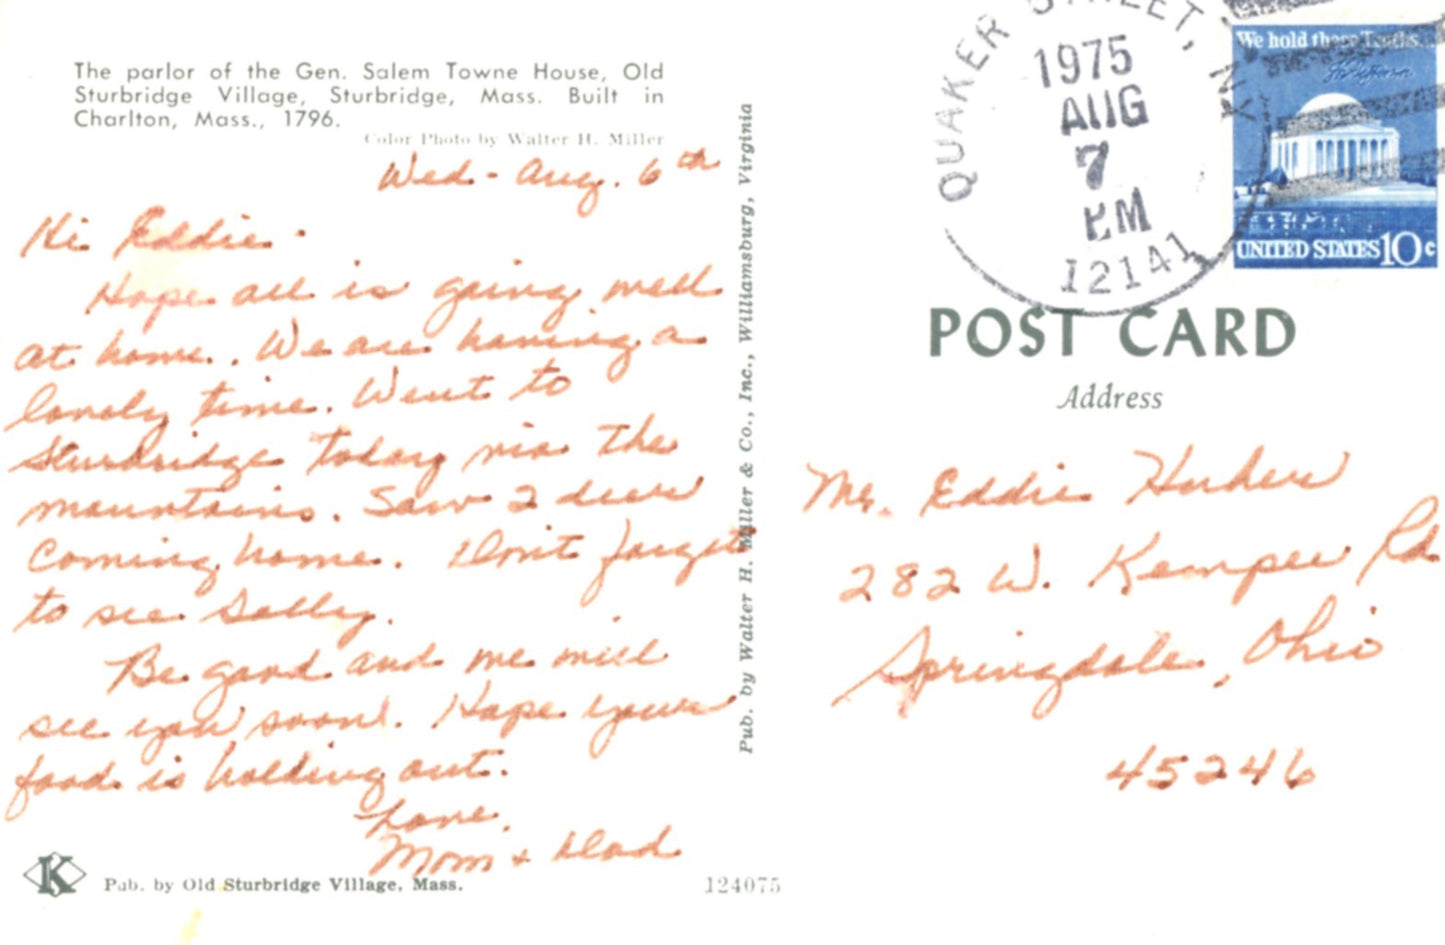 The parlor of the Gen. Salem Towne House, Old
Sturbridge Village, Sturbridge, Mass. Built in
Charlton, Mass., 1796.
Color Photo by Walter H. Miller
Wed - Aug. 6th
Hi Eddie.
Hope all is going well
at home. We are having a
lovely time. Went to
Sturbridge today via the
mountains. Saw 2 deer
coming home. Don't forget
to see Sally.
Be good and we will
see you soon. Hope your
food is holding out.
Love,
Mom + Dad
K
Pub. by Old Sturbridge Village, Mass.
124075
Pub. by Walter H. Miller & Co., Inc., Williamsburg, Virginia
QUAKER STREET, N.Y.
1975
AUG
7
PM
12141
We hold these Truths
UNITED STATES 10c
POST CARD
Address
Mr. Eddie
282 W. Kemper Rd
Springdale, Ohio
45246